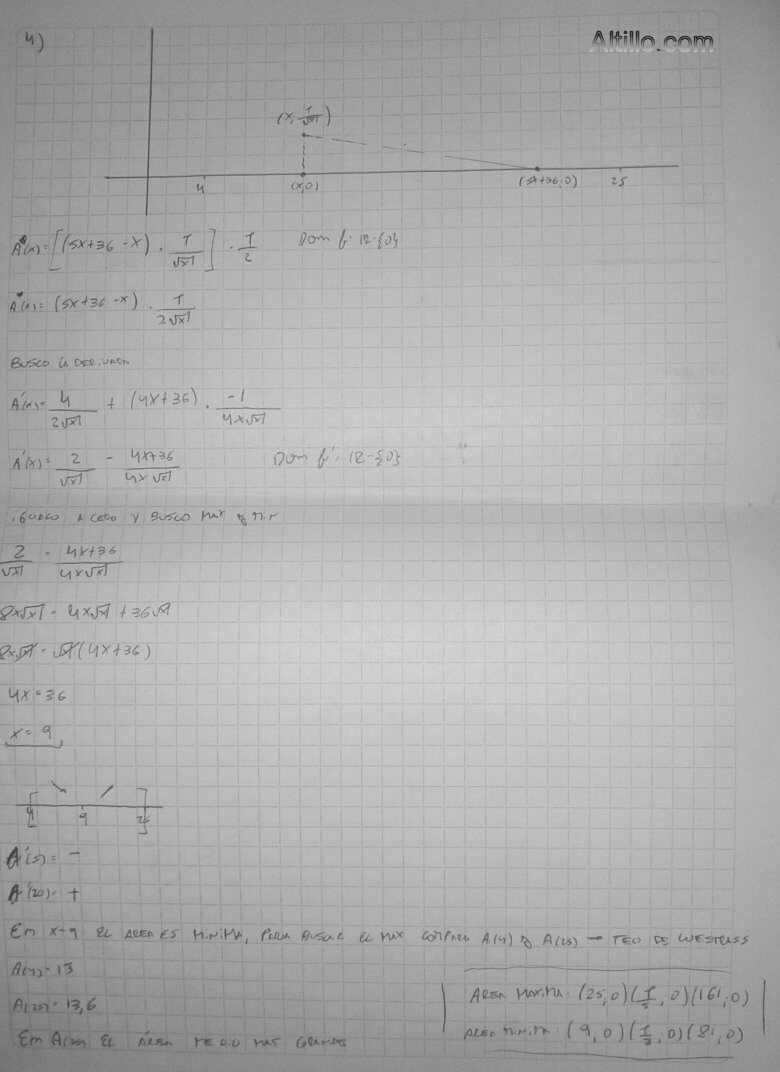 4)
Altillo.com
(x, 1/√x)
4 (x,0) (5x+36,0) 25
A(x)= [(5x+36-x) . 1/√x] . 1/2 Dom f: R-{0}
A(x)= (5x+36-x) . 1/2√x
Busco la derivada
A'(x)= 4/2√x + (4x+36) . -1/4x√x
A'(x)= 2/√x - 4x+36/4x√x Dom f': R-{0}
igualo a cero y busco max y min
2/√x = 4x+36/4x√x
8x√x = 4x√x + 36√x
8x√x = √x(4x+36)
4x=36
x=9
4 9 25
A'(5)= -
A'(20)= +
En x=9 el area es minima, para buscar el max comparo A(4) y A(25) → Teo de Westrass
A(4)=13
A(25)=13,6
En A(25) el área me dio mas grande
Area maxima: (25,0)(1/5,0)(161,0)
Area minima: (9,0)(1/3,0)(81,0)